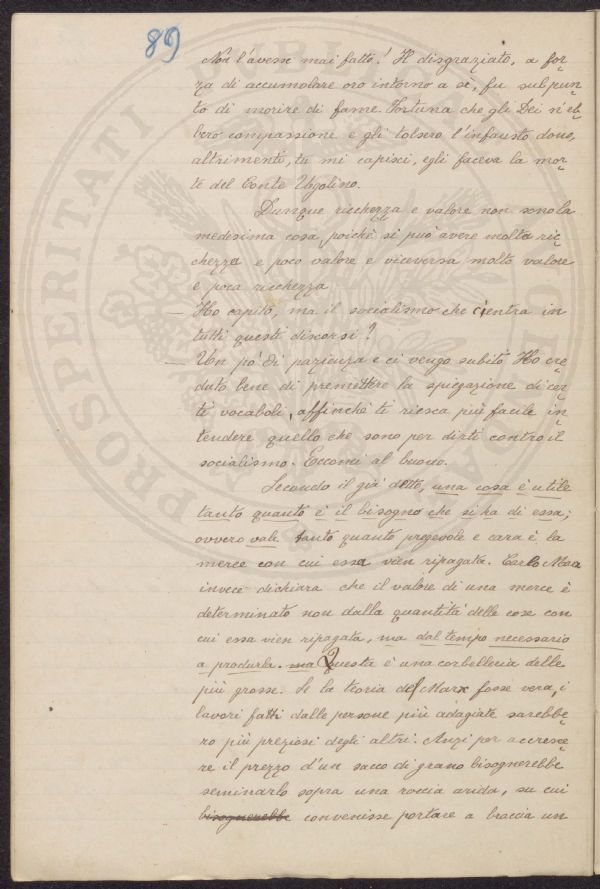 89
Non l'avesse mai fatto! Il disgraziato, a for-
za di accumolare oro intorno a sè, fu sul pun-
to di morire di fame. Fortuna che gli Dei n'eb-
bero compassione e gli tolsero l'infausto dono,
altrimenti, tu mi capisci, egli faceva la mor-
te del Conte Ugolino.
Dunque ricchezza e valore non sono la
medesima cosa, poichè si può avere molta ric-
chezza e poco valore e viceversa molto valore
e poca ricchezza
— Ho capito, ma il socialismo che c'entra in
tutti questi discorsi?
— Un pò di pazienza e ci vengo subito. Ho cre-
duto bene di premettere la spiegazione di cer-
ti vocaboli, affinchè ti riesca più facile in-
tendere quello che sono per dirti contro il
socialismo. Eccomi al buono.
Secondo il già detto, una cosa è utile
tanto quanto è il bisogno che si ha di essa;
ovvero vale tanto quanto pregevole e cara è la
merce con cui essa vien ripagata. Carlo Max
invece dichiara che il valore di una merce è
determinato non dalla quantità delle cose con
cui essa vien ripagata, ma dal tempo necessario
a produrla. ma Questa è una corbelleria delle
più grosse. Se la teoria del Marx fosse vera, i
lavori fatti dalle persone più adagiate sarebbe-
ro più preziosi degli altri. Anzi per accresce-
re il prezzo d'un sacco di grano bisognerebbe
seminarlo sopra una roccia arida, su cui
bisognerebbe convenisse portare a braccia un
PROSPERITATI PUBLICAE